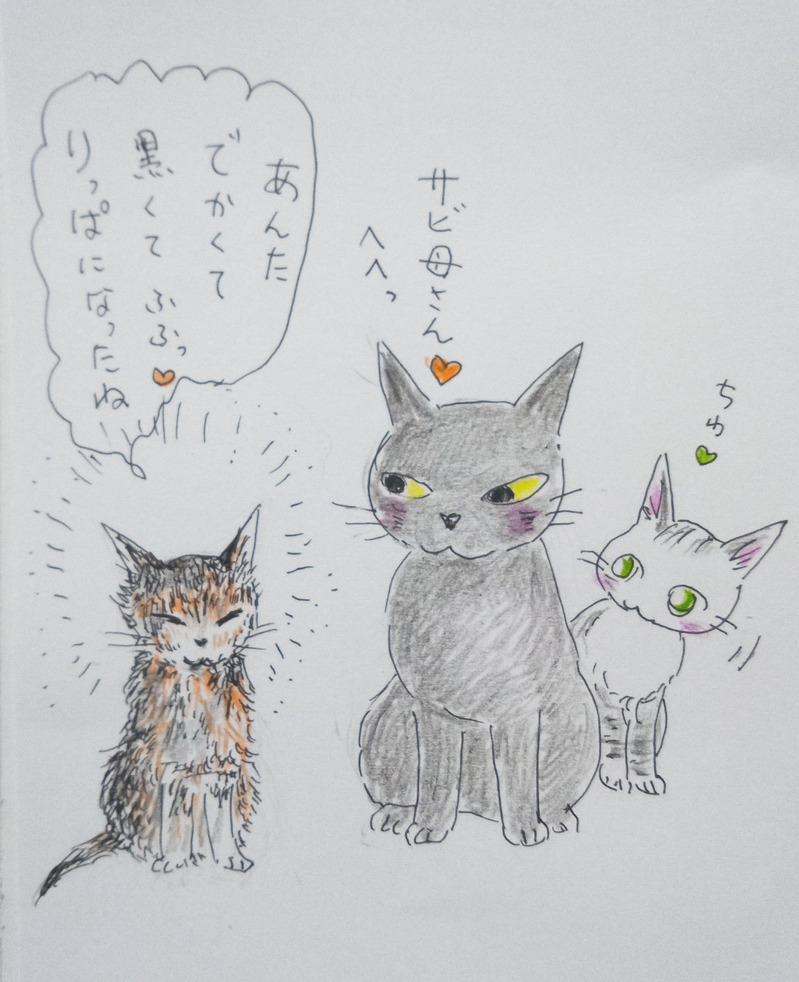 あんた
でかくて
黒くて ふふっ
りっぱになったね
サビ母さん
へへっ
ちゅ